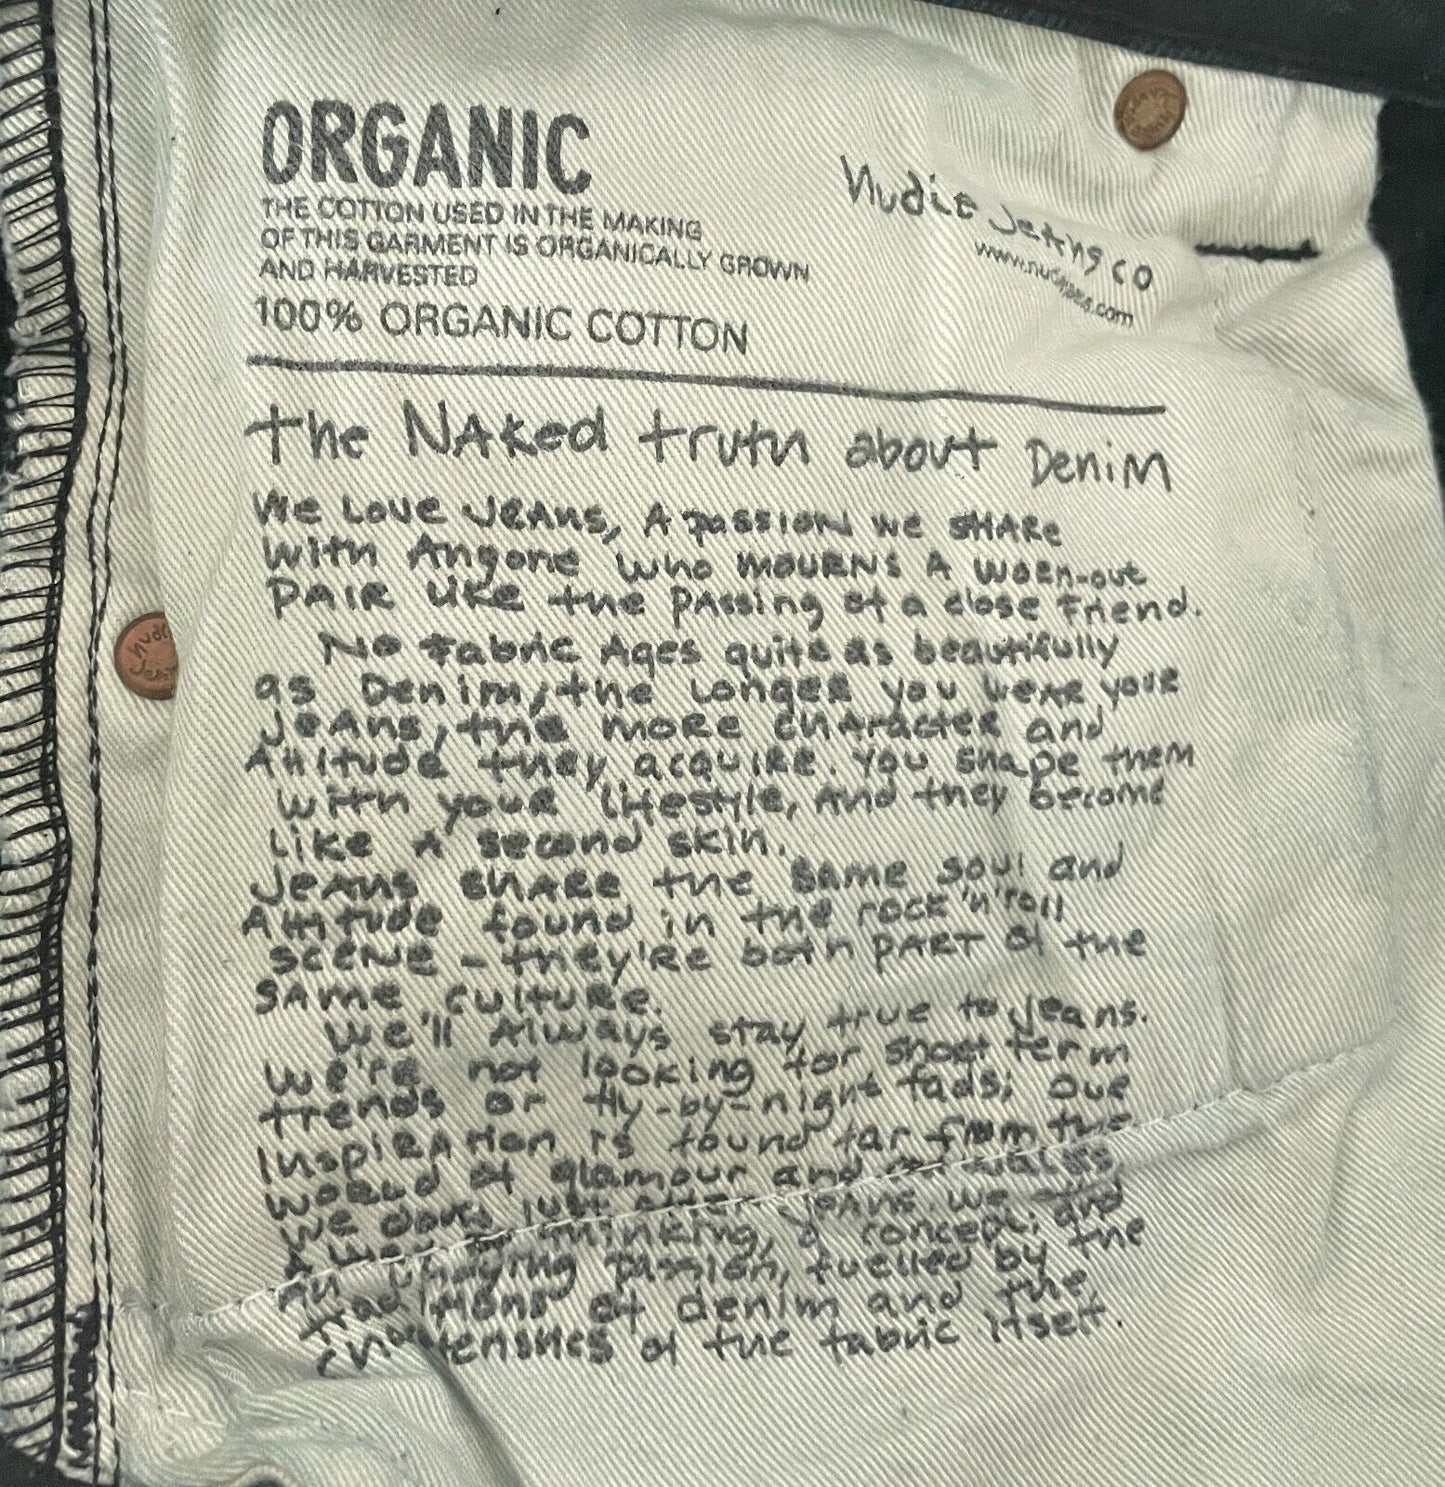 ORGANIC
THE COTTON USED IN THE MAKING
OF THIS GARMENT IS ORGANICALLY GROWN
AND HARVESTED
100% ORGANIC COTTON
Nudie Jeans CO
www.nudiejeans.com
the NAKed truth about Denim
We Love Jeans, A passion we SHARe
with Anyone who mouRNs A worn-out
PAIR like the passing of a close friend.
No fabric Ages quite as beautifully
as Denim, the Longer you wear your
Jeans, the more character and
Attitude they acquire. You shape them
with your lifestyle, And they become
Like A second skin.
Jeans share the same soul and
Attitude found in the rock 'n' roll
scene - they're both PART of the
same culture.
We'll Always stay true to Jeans.
We're not looking for short term
trends or fly-by-night fads; our
Inspiration is found far from the
world of glamour and catwalks.
We don't just offer jeans. We offer
A way of thinking, a concept; and
An undying passion, fuelled by the
traditions of denim and the
characteristics of the fabric itself.
nudie
Jeans